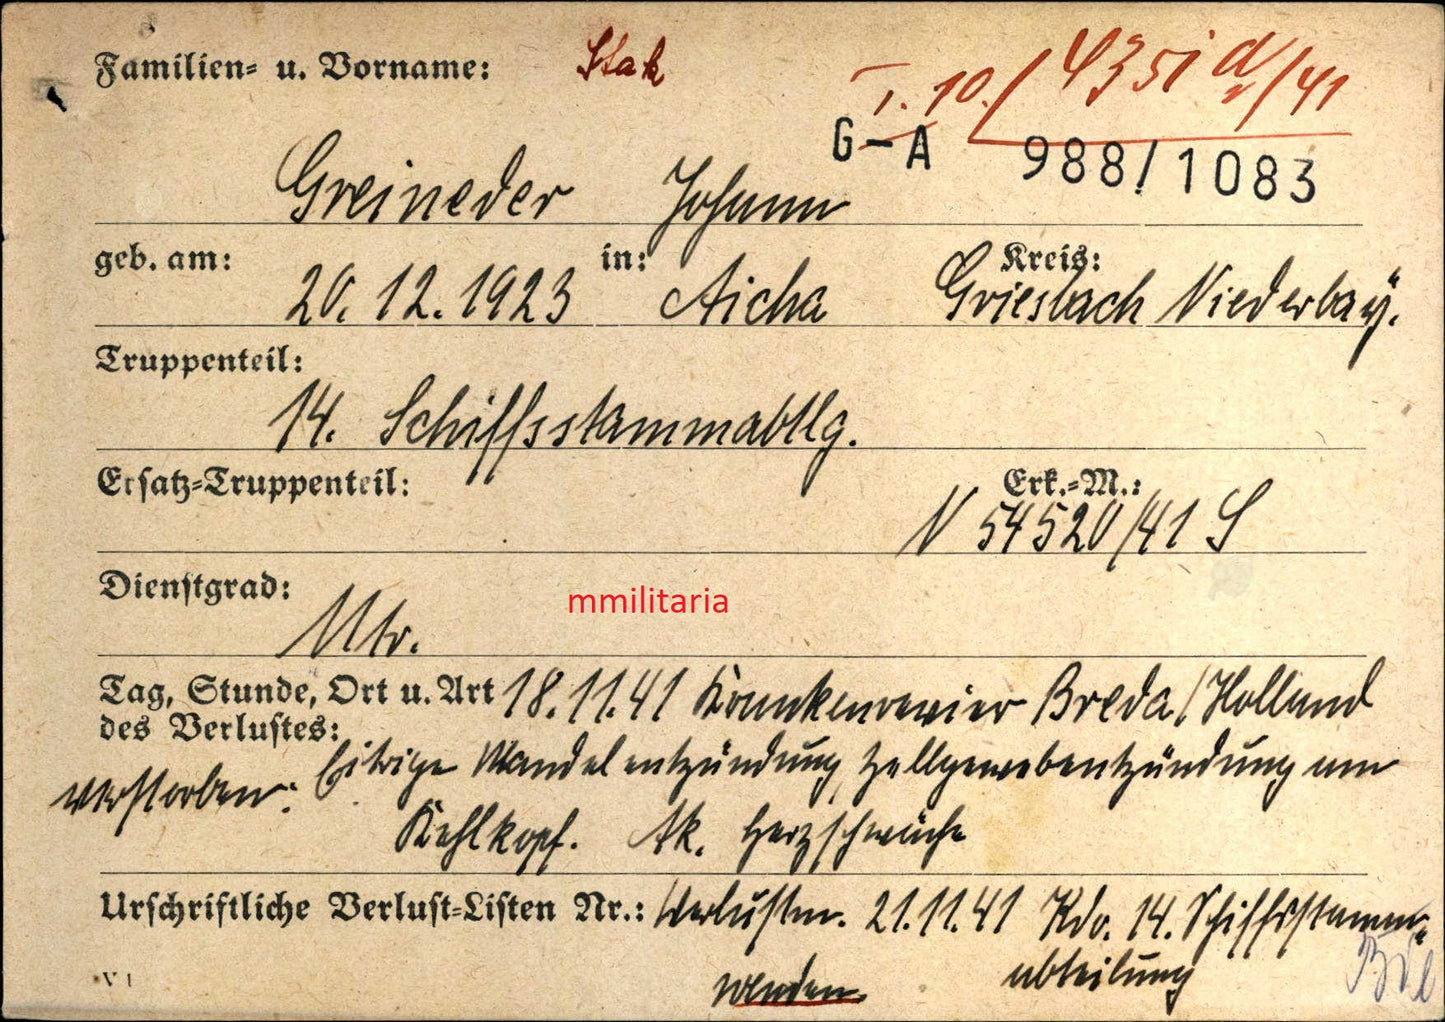 Familien- u. Vorname: Stak
I. 10. / 4351 /41
G-A 988/1083
Greineder Johann
geb. am: 20.12.1923 in: Aicha Kreis: Griesbach Niederbay.
Truppenteil:
14. Schiffsstammabtlg.
Ersatz-Truppenteil: Erk.-M.:
N 54520/41 S
Dienstgrad:
Mtr.
mmilitaria
Tag, Stunde, Ort u. Art 18.11.41 Krankenrevier Breda/Holland
des Verlustes:
verstorben: Eitrige Mandelentzündung, Zellgewebentzündung am
Kehlkopf. Ak. Herzschwäche
Urschriftliche Verlust-Listen Nr.: Verlustm. 21.11.41 Kdo. 14. Schiffsstamm-
abteilung
V 1